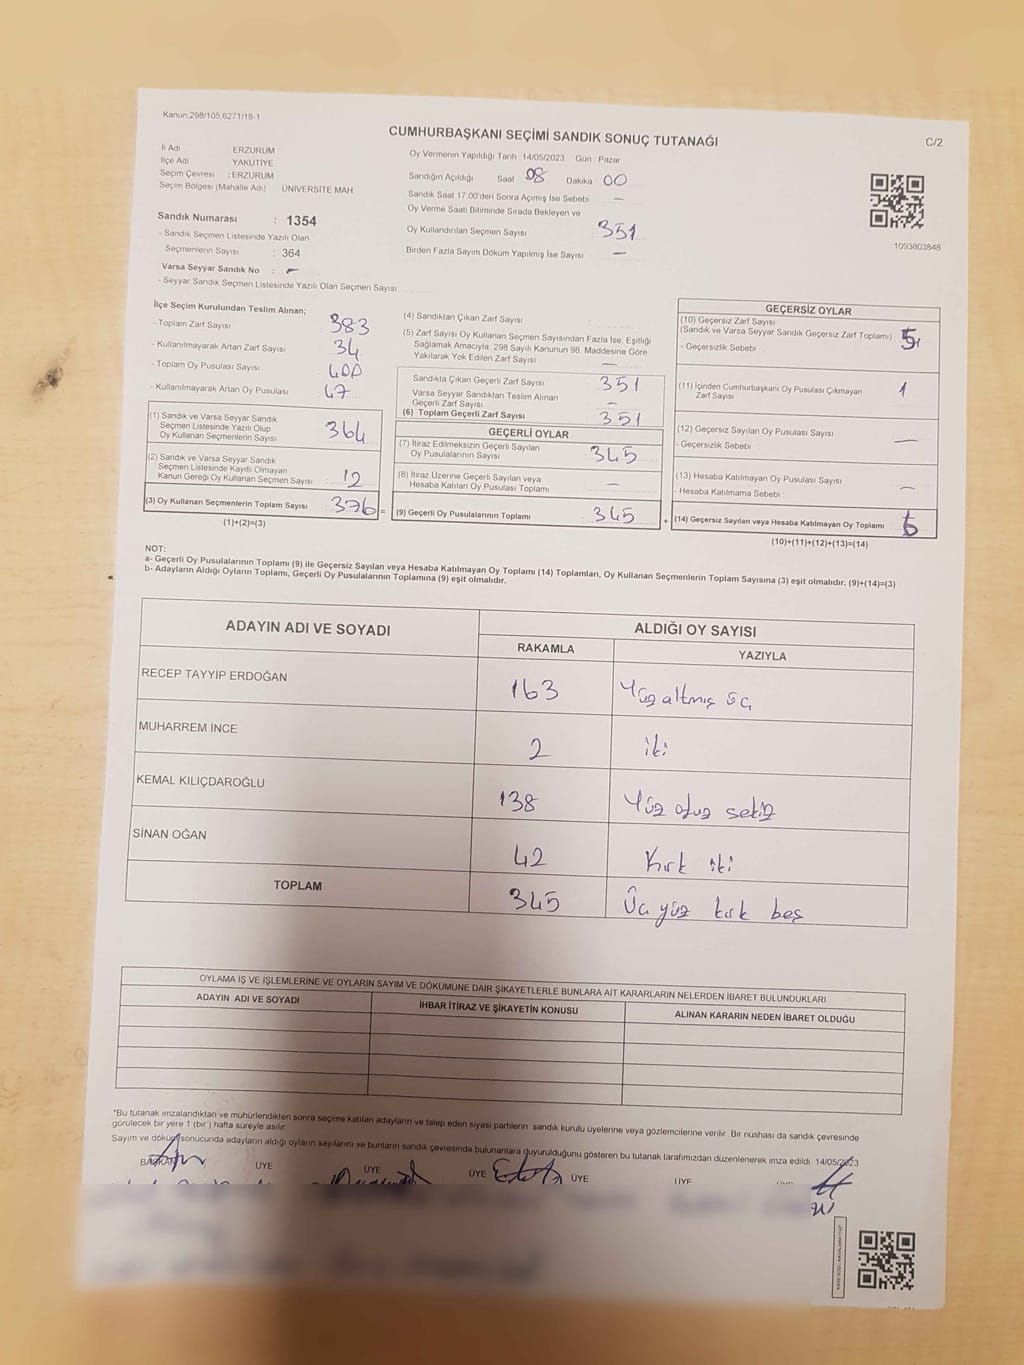 Kanun,298/105,6271/18-1
CUMHURBAŞKANI SEÇİMİ SANDIK SONUÇ TUTANAĞI
C/2
İl Adı ERZURUM
İlçe Adı YAKUTİYE
Seçim Çevresi : ERZURUM
Seçim Bölgesi (Mahalle Adı) ÜNİVERSİTE MAH
Oy Vermenin Yapıldığı Tarih : 14/05/2023 Gün : Pazar
Sandığın Açıldığı Saat 08 Dakika 00
Sandık Saat 17:00'den Sonra Açımış İse Sebebi —
Oy Verme Saati Bitiminde Sırada Bekleyen ve
Oy Kullandırılan Seçmen Sayısı 351
Birden Fazla Sayım Döküm Yapılmış İse Sayısı —
1093803848
Sandık Numarası : 1354
- Sandık Seçmen Listesinde Yazılı Olan
Seçmenlerin Sayısı : 364
Varsa Seyyar Sandık No : —
- Seyyar Sandık Seçmen Listesinde Yazılı Olan Seçmen Sayısı:
İlçe Seçim Kurulundan Teslim Alınan;
- Toplam Zarf Sayısı 383
- Kullanılmayarak Artan Zarf Sayısı 34
- Toplam Oy Pusulası Sayısı 400
- Kullanılmayarak Artan Oy Pusulası 47
(1) Sandık ve Varsa Seyyar Sandık
Seçmen Listesinde Yazılı Olup
Oy Kullanan Seçmenlerin Sayısı 364
(2) Sandık ve Varsa Seyyar Sandık
Seçmen Listesinde Kayıtlı Olmayan
Kanun Gereği Oy Kullanan Seçmen Sayısı 12
(3) Oy Kullanan Seçmenlerin Toplam Sayısı 376 =
(1)+(2)=(3)
(4) Sandıktan Çıkan Zarf Sayısı
(5) Zarf Sayısı Oy Kullanan Seçmen Sayısından Fazla İse, Eşitliği
Sağlamak Amacıyla, 298 Sayılı Kanunun 98. Maddesine Göre
Yakılarak Yok Edilen Zarf Sayısı —
Sandıkta Çıkan Geçerli Zarf Sayısı 351
Varsa Seyyar Sandıktan Teslim Alınan
Geçerli Zarf Sayısı —
(6) Toplam Geçerli Zarf Sayısı 351
GEÇERLİ OYLAR
(7) İtiraz Edilmeksizin Geçerli Sayılan
Oy Pusulalarının Sayısı 345
(8) İtiraz Üzerine Geçerli Sayılan veya
Hesaba Katılan Oy Pusulası Toplamı —
(9) Geçerli Oy Pusulalarının Toplamı 345 +
GEÇERSİZ OYLAR
(10) Geçersiz Zarf Sayısı
(Sandık ve Varsa Seyyar Sandık Geçersiz Zarf Toplamı) 5
- Geçersizlik Sebebi :
(11) İçinden Cumhurbaşkanı Oy Pusulası Çıkmayan
Zarf Sayısı 1
(12) Geçersiz Sayılan Oy Pusulası Sayısı —
- Geçersizlik Sebebi :
(13) Hesaba Katılmayan Oy Pusulası Sayısı —
- Hesaba Katılmama Sebebi :
(14) Geçersiz Sayılan veya Hesaba Katılmayan Oy Toplamı 6
(10)+(11)+(12)+(13)=(14)
NOT:
a- Geçerli Oy Pusulalarının Toplamı (9) ile Geçersiz Sayılan veya Hesaba Katılmayan Oy Toplamı (14) Toplamları, Oy Kullanan Seçmenlerin Toplam Sayısına (3) eşit olmalıdır. (9)+(14)=(3)
b- Adayların Aldığı Oyların Toplamı, Geçerli Oy Pusulalarının Toplamına (9) eşit olmalıdır.
ADAYIN ADI VE SOYADI ALDIĞI OY SAYISI
RAKAMLA YAZIYLA
RECEP TAYYİP ERDOĞAN 163 Yüz altmış üç
MUHARREM İNCE 2 iki
KEMAL KILIÇDAROĞLU 138 Yüz otuz sekiz
SİNAN OĞAN 42 Kırk iki
TOPLAM 345 Üç yüz kırk beş
OYLAMA İŞ VE İŞLEMLERİNE VE OYLARIN SAYIM VE DÖKÜMÜNE DAİR ŞİKAYETLERLE BUNLARA AİT KARARLARIN NELERDEN İBARET BULUNDUKLARI
ADAYIN ADI VE SOYADI İHBAR İTİRAZ VE ŞİKAYETİN KONUSU ALINAN KARARIN NEDEN İBARET OLDUĞU
*Bu tutanak imzalandıktan ve mühürlendikten sonra seçime katılan adayların ve talep eden siyasi partilerin sandık kurulu üyelerine veya gözlemcilerine verilir. Bir nushası da sandık çevresinde
görülecek bir yere 1 (bir ) hafta süreyle asılır.
Sayım ve döküm sonucunda adayların aldığı oyların sayılarını ve bunların sandık çevresinde bulunanlara duyurulduğunu gösteren bu tutanak tarafımızdan düzenlenerek imza edildi. 14/05/2023
BAŞKAN ÜYE ÜYE ÜYE ÜYE ÜYE